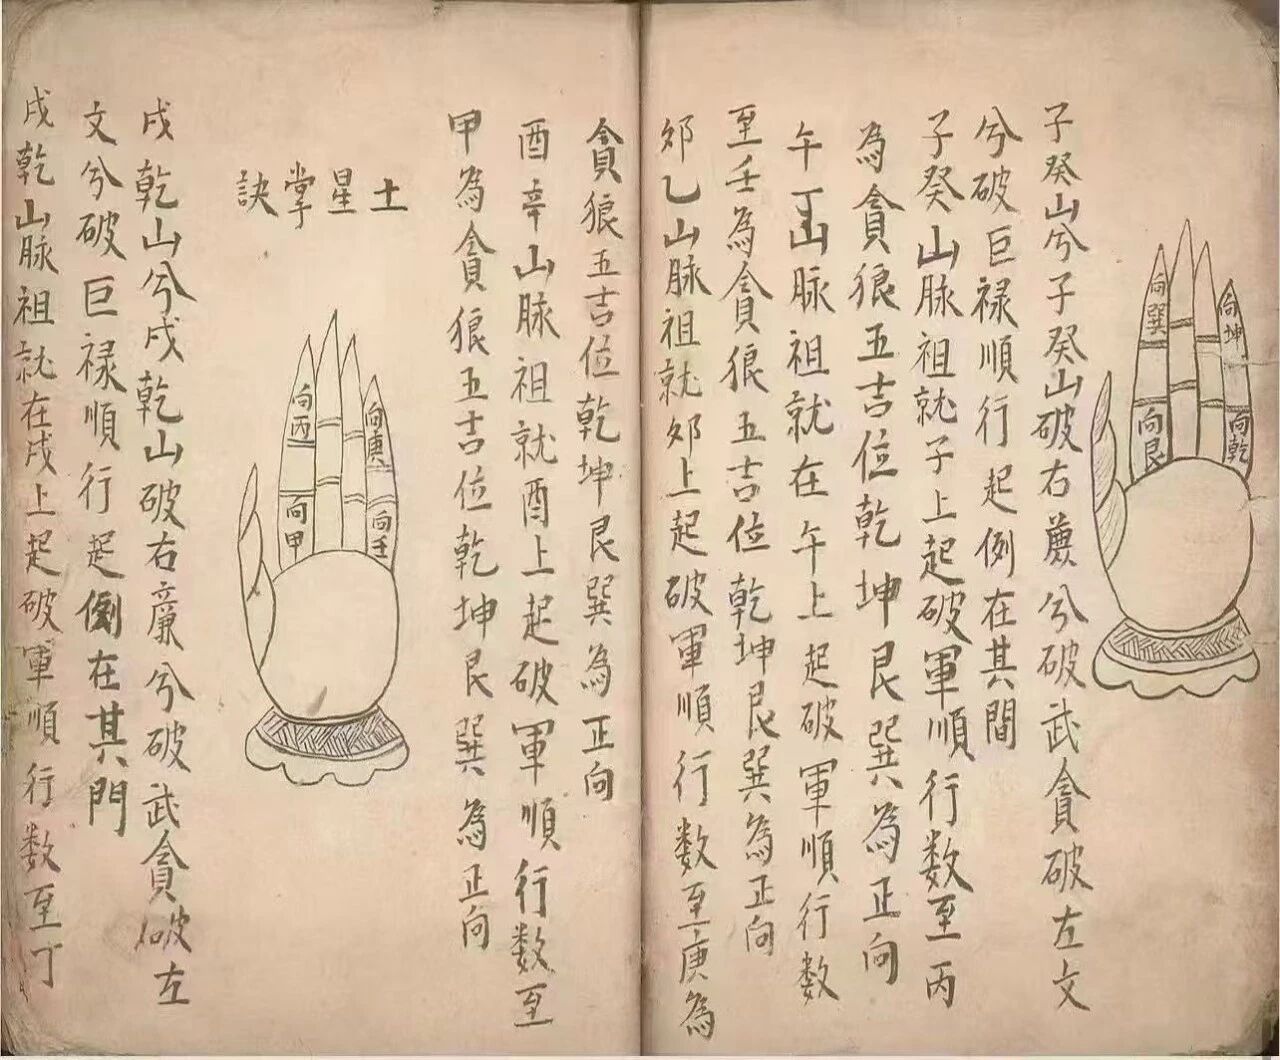 向巽
向艮
向坤
向乾
子癸山兮子癸山破右薕兮破武貪破左文
兮破巨禄順行起例在其間
子癸山脉祖就子上起破軍順行数至丙
為貪狼五吉位乾坤艮巽為正向
午丁山脉祖就在午上起破軍順行数
至壬為貪狼五吉位乾坤艮巽為正向
夘乙山脉祖就夘上起破軍順行数至庚為
貪狼五吉位乾坤艮巽為正向
酉辛山脉祖就酉上起破軍順行数至
甲為貪狼五吉位乾坤艮巽為正向
土星掌訣
向丙
向甲
向庚
向壬
戌乾山兮戌乾山破右廉兮破武貪破左
文兮破巨禄順行起例在其門
戌乾山脉祖就在戌上起破軍順行数至丁